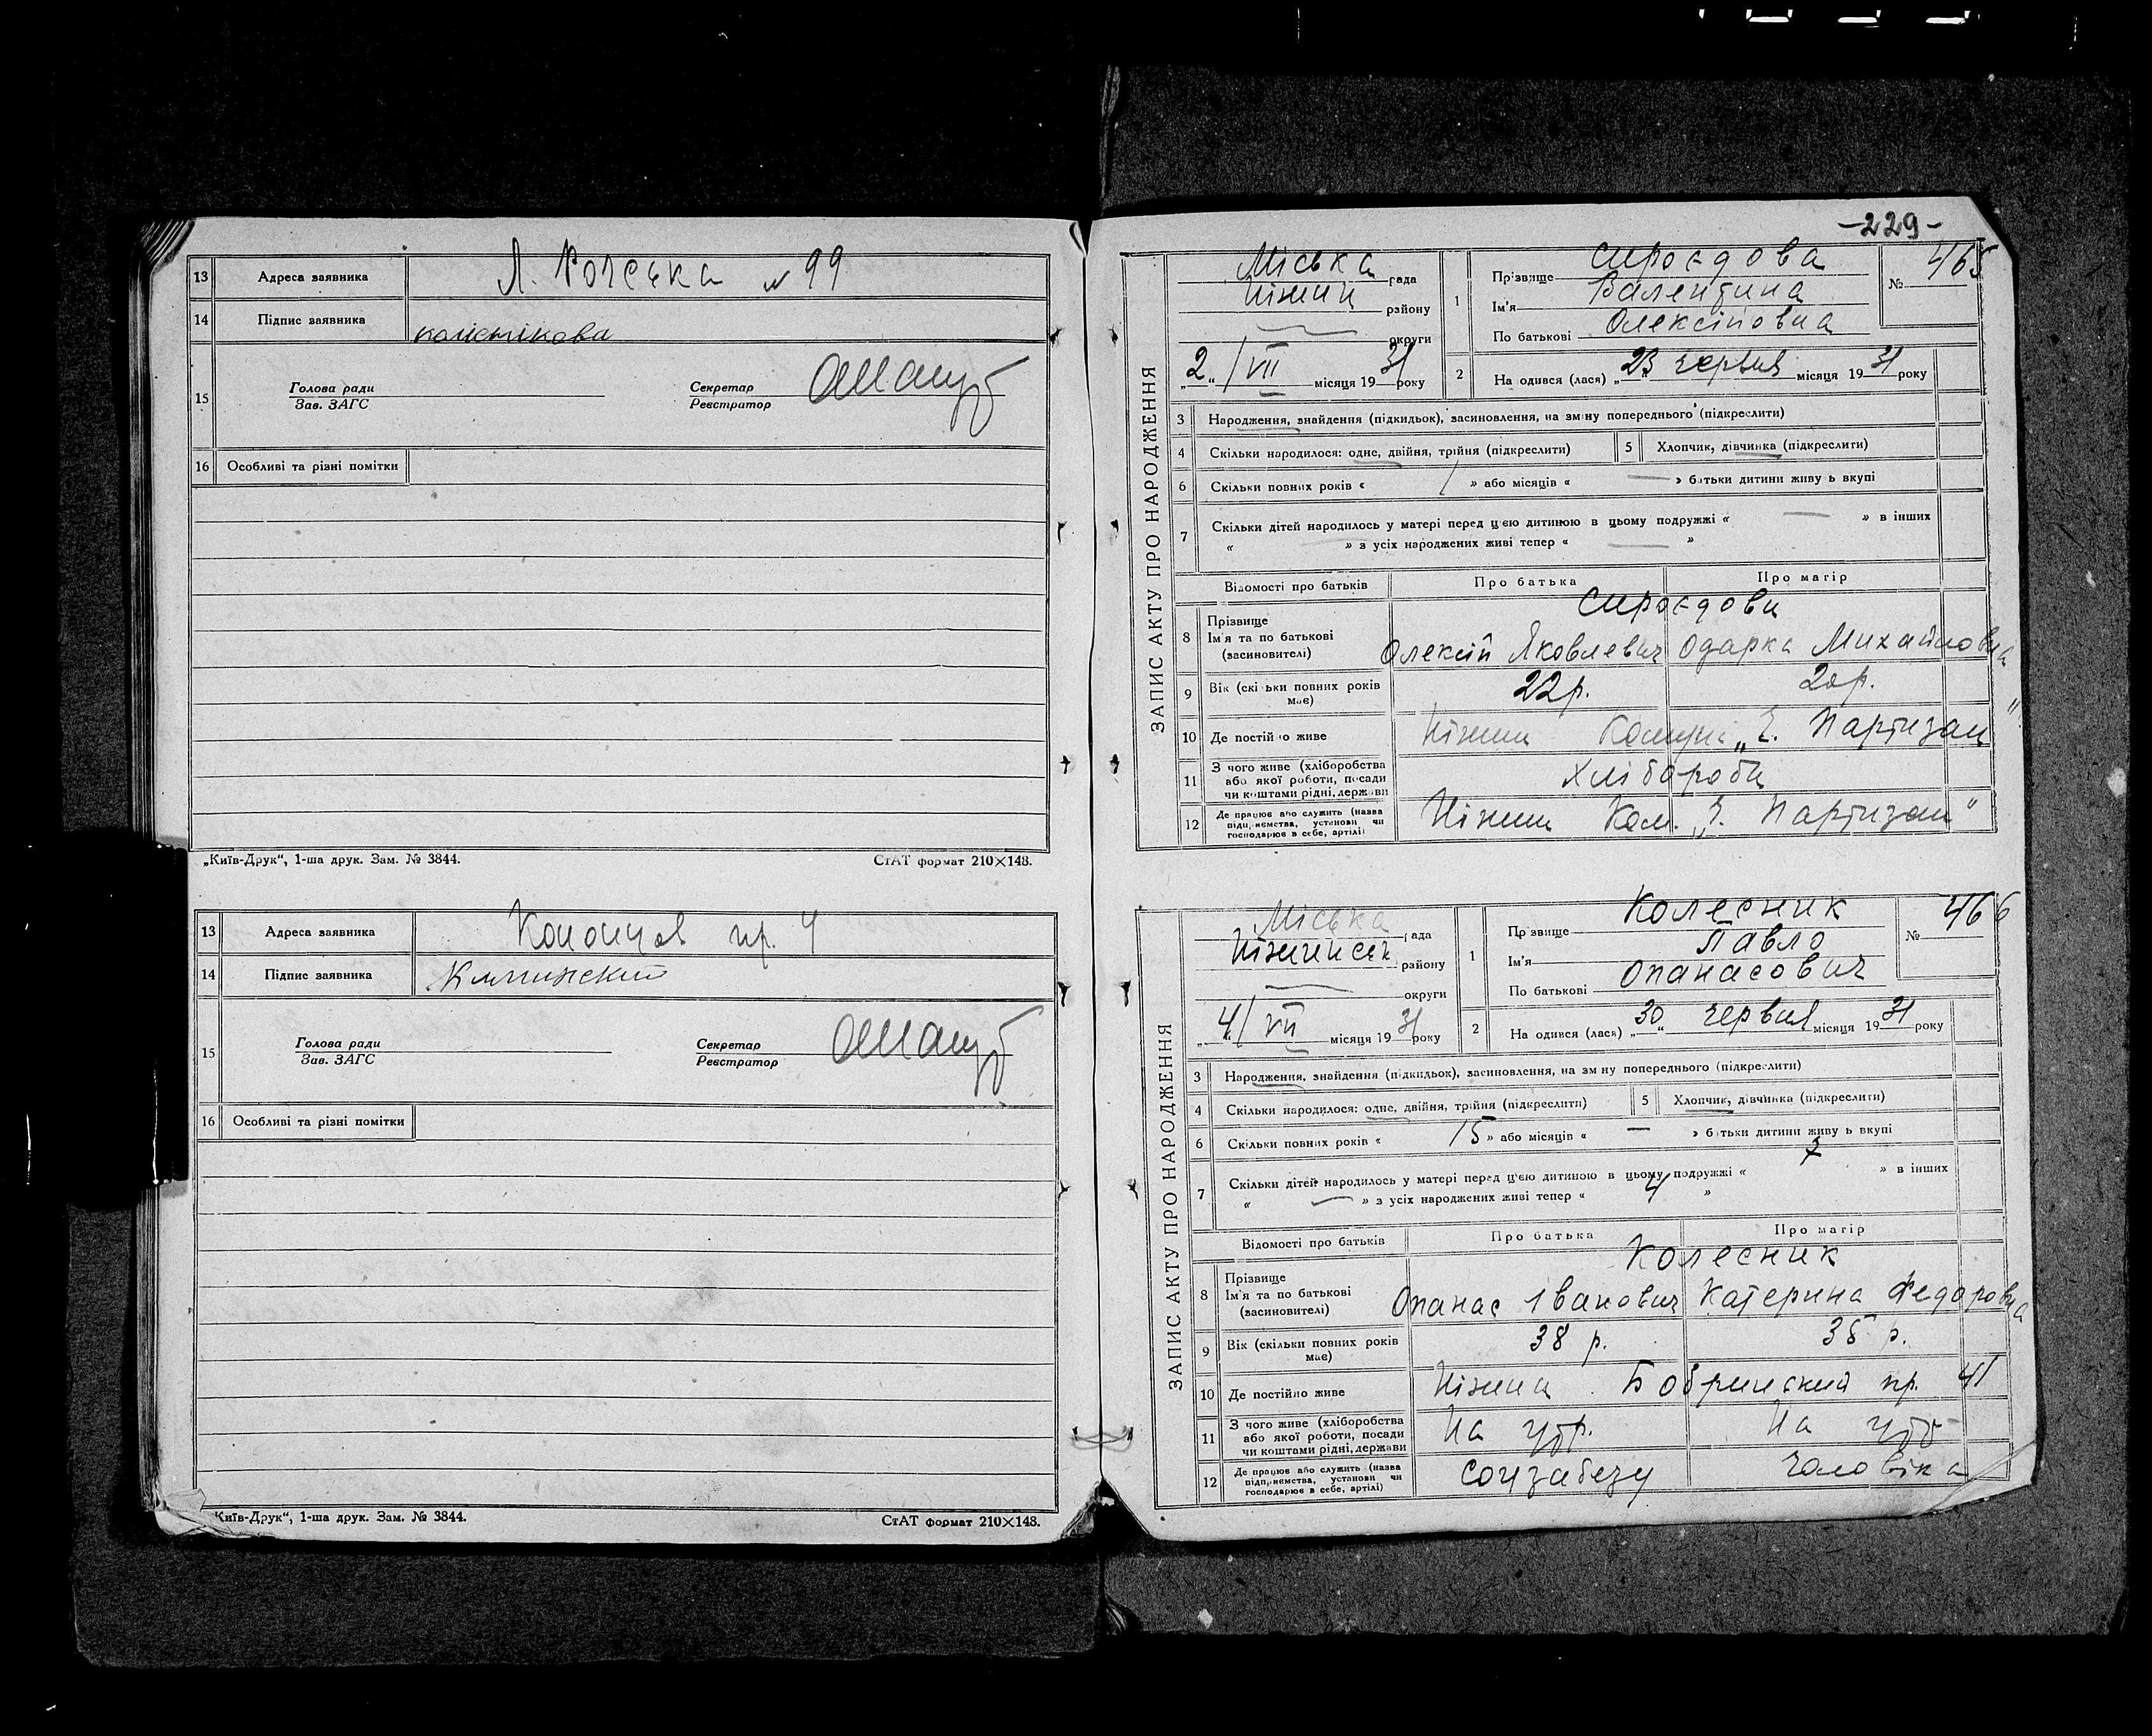 13 Адреса заявника Л. № 99
14 Підпис заявника
15 Голова ради
Зав. ЗАГС
Секретар
Реєстратор
16 Особливі та різні помітки
„Київ-Друк“, 1-ша друк. Зам. № 3844. СтАТ формат 210×148.
13 Адреса заявника пр. 4
14 Підпис заявника
15 Голова ради
Зав. ЗАГС
Секретар
Реєстратор
16 Особливі та різні помітки
Київ-Друк“, 1-ша друк. Зам. № 3844. СтАТ формат 210×148.
-229-
ЗАПИС АКТУ ПРО НАРОДЖЕННЯ
Міська рада
Ніжин району
округи
„2“ VII місяця 1931 року
1 Прізвище Сироєдова
Ім'я Валентина
По батькові Олексіївна
№ 465
2 На одився (лася) „23“ червня місяця 1931 року
3 Народження, знайдення (підкидьок), засиновлення, на зміну попереднього (підкреслити)
4 Скільки народилося: одне, двійня, трійня (підкреслити) 5 Хлопчик, дівчинка (підкреслити)
6 Скільки повних років « 1 » або місяців « — » батьки дитини живу ь вкупі
7 Скільки дітей народилось у матері перед цією дитиною в цьому подружжі « — » в інших
« — » з усіх народжених живі тепер « — »
Відомості про батьків Про батька Про матір
8 Прізвище
Ім'я та по батькові
(засиновителі)
Сироєдови
Олексій Яковлевич Одарка Михайловна
9 Вік (скі ьки повних років має) 22 р. 20 р.
10 Де постійно живе Ніжин Комуні „Ч. Партизан“
11 З чого живе (хліборобства або якої роботи, посади чи коштами рідні, держави Хлібороби
12 Де працює або служить (назва підприємства, установи чи господарює в себе, артілі) Ніжин Ком. „Ч. Партизан“
ЗАПИС АКТУ ПРО НАРОДЖЕННЯ
Міська рада
Ніжинськ району
округи
„4“ VII місяця 1931 року
1 Прізвище Колесник
Ім'я Павло
По батькові Опанасович
№ 466
2 На одився (лася) „30“ червня місяця 1931 року
3 Народження, знайдення (підкидьок), засиновлення, на зміну попереднього (підкреслити)
4 Скільки народилося: одне, двійня, трійня (підкреслити) 5 Хлопчик, дівчинка (підкреслити)
6 Скільки повних років « 15 » або місяців « — » батьки дитини живу ь вкупі
7 Скільки дітей народилось у матері перед цією дитиною в цьому подружжі « 7 » в інших
« — » з усіх народжених живі тепер « 4 »
Відомості про батьків Про батька Про матір
8 Прізвище
Ім'я та по батькові
(засиновителі)
Колесник
Опанас Іванович Катерина Федоровна
9 Вік (скільки повних років має) 38 р. 35 р.
10 Де постійно живе Ніжин Бобринский пр. 41
11 З чого живе (хліборобства або якої роботи, посади чи коштами рідні, держави На утр. На утр
12 Де працює або служить (назва підприємства, установи чи господарює в себе, артілі) Соцзабезу чоловіка